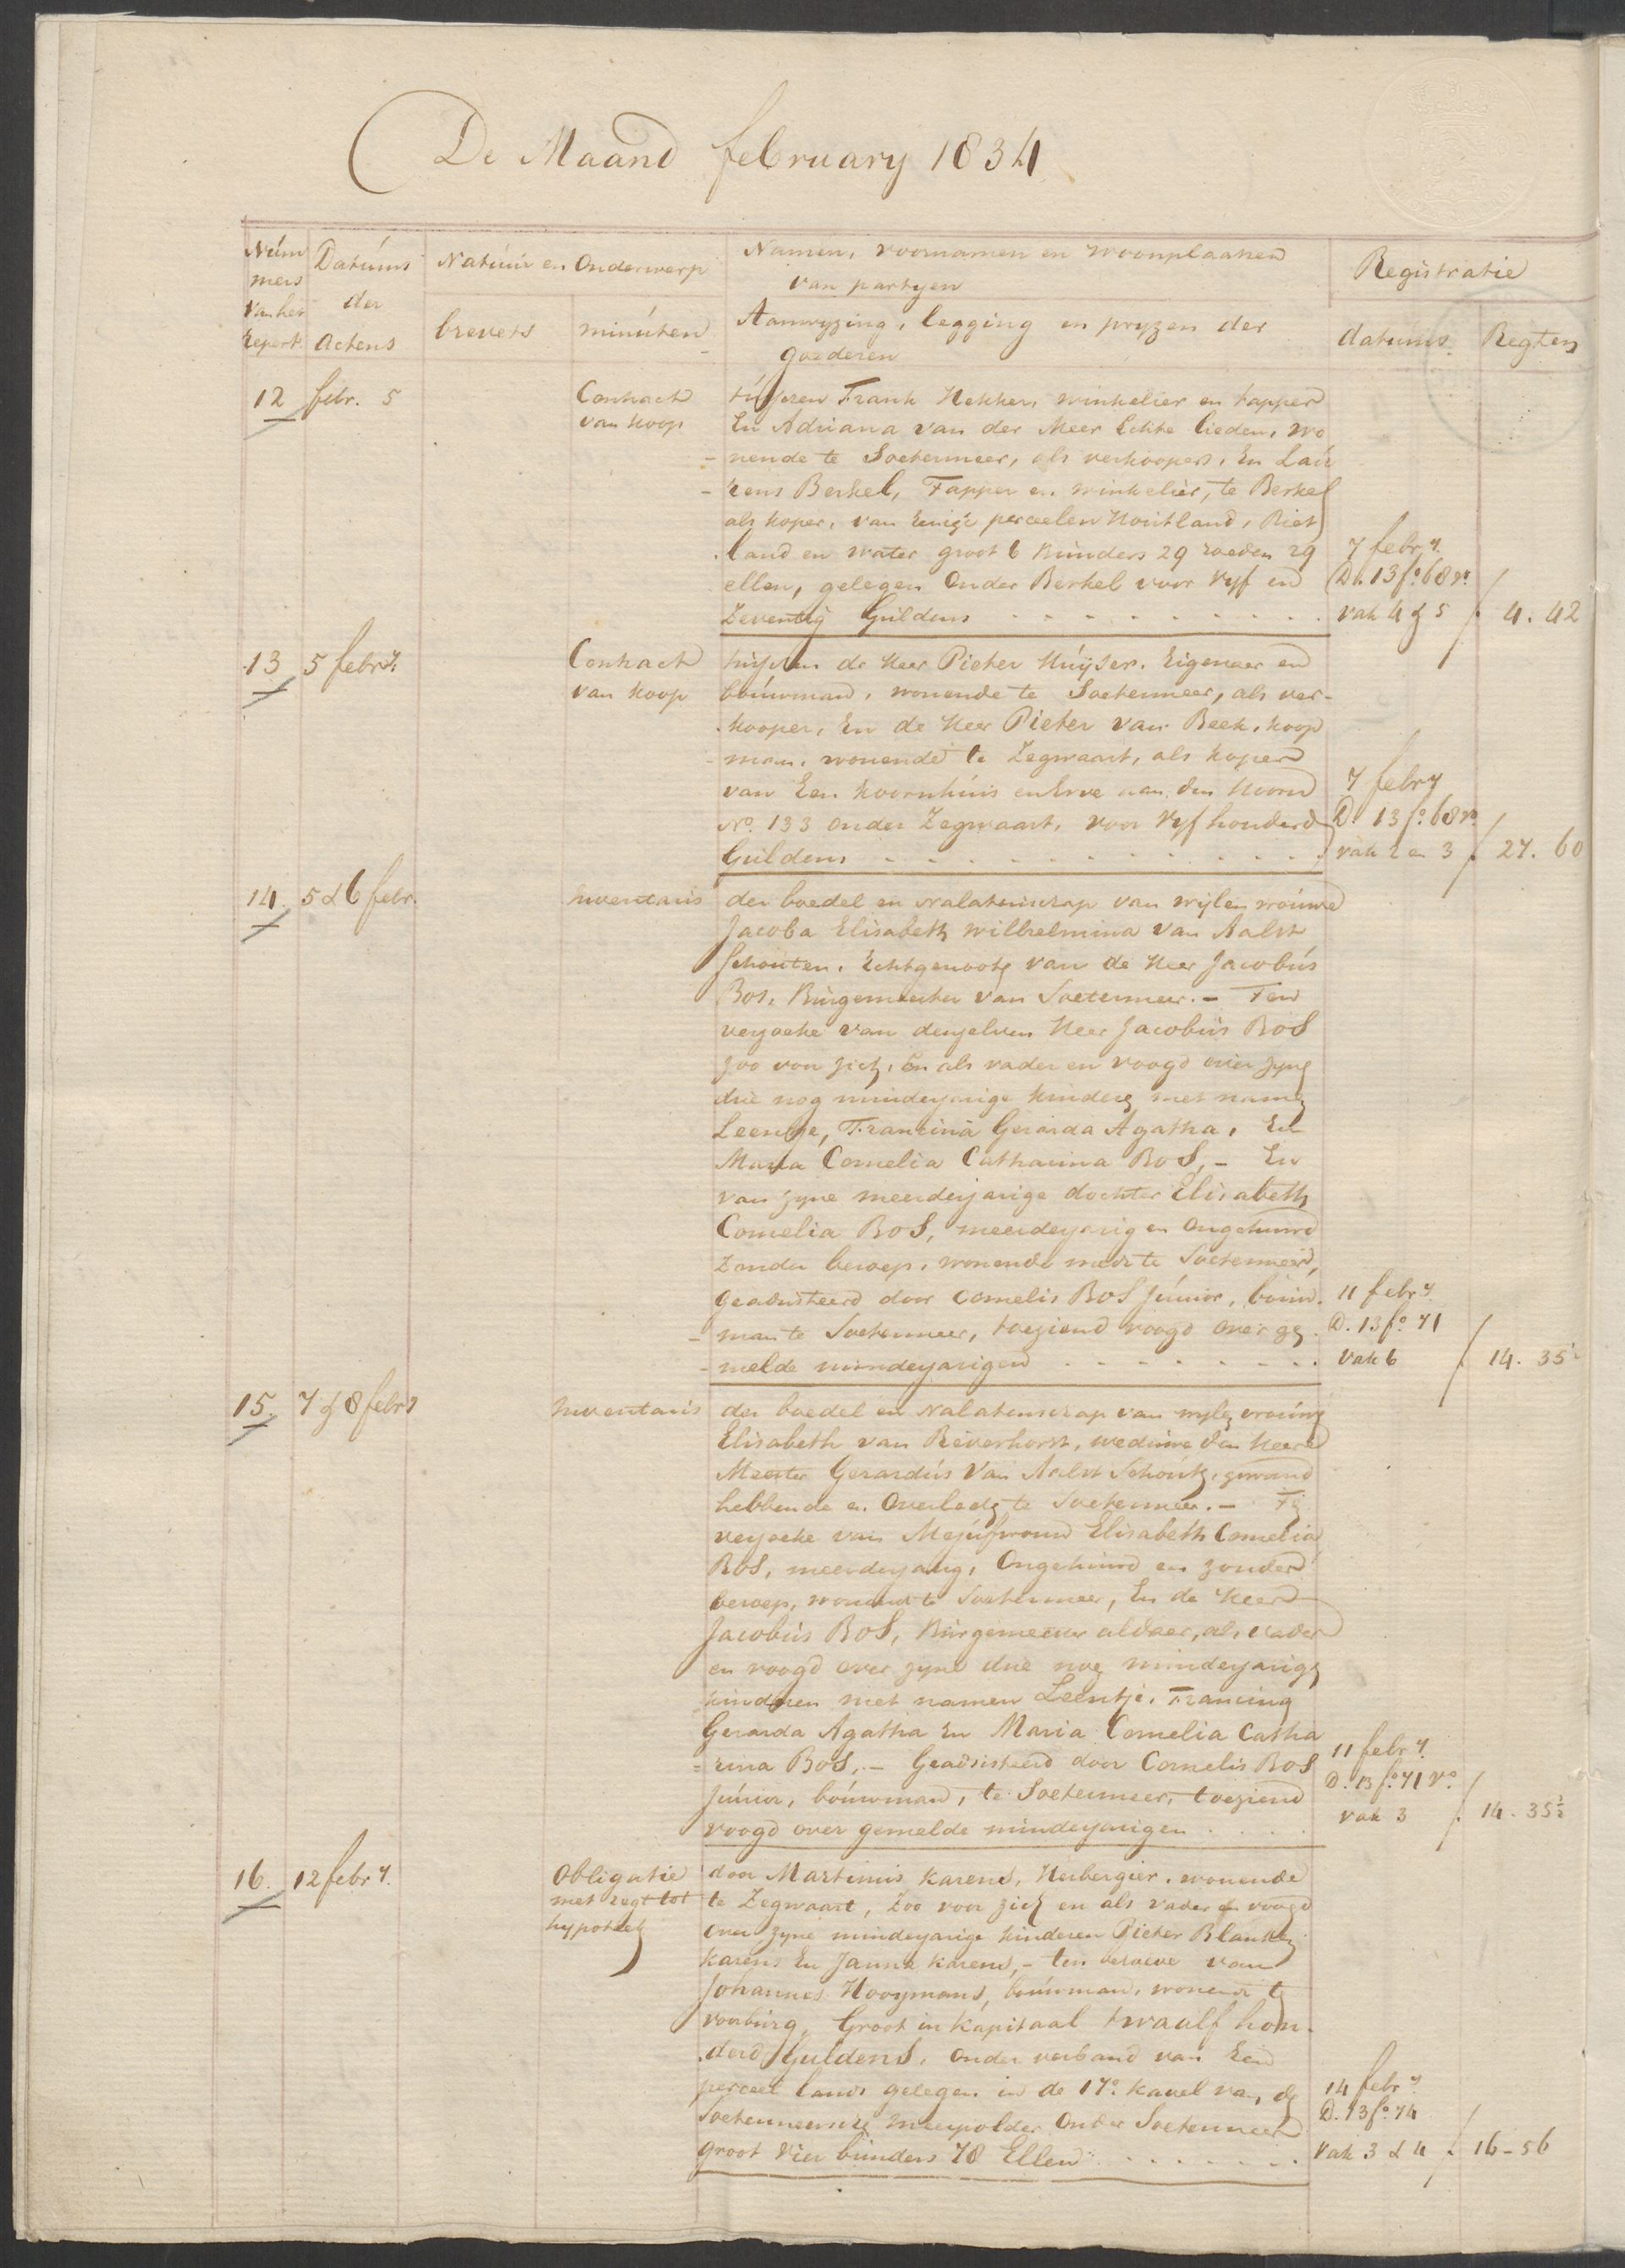 De Maand february 1834
Núm mers van het repert.
Datúms der Actens
Natuúr en Onderwerp
brevets
minúten
Namen, voornamen en woonplaatsen
van partyen
Aanwyzing, legging en pryzen der
goederen
Registratie
datums
Regten
12 febr. 5 Contract
van koop
tússen Frank Hekker, winkelier en tapper
En Adriana van der Meer Echte lieden, wo
- nende te Soetermeer, als verkoopers, En Laú
- rens Berkel, Tapper en winkelier, te Berkel
als koper, van Eenige perceelen Houtland, Riet
land en water groot 6 búnders 29 roeden 29
ellen, gelegen Onder Berkel voor Vyf en
Zeventig Guldens
7 febr.y
D. 13 f.o 68 r.o
vak 4 & 5 4. 42
13 5 febr.y Contract
van koop
tusschen de Heer Pieter Húijser, Eigenaer en
boúwman, wonende te Soetermeer, als ver-
kooper, En de Heer Pieter van Beek, koop
- man, wonende te Zegwaart, als koper
van Een koornhúis en Erve aan den Noord
No. 133 onder Zegwaart, voor Vyf honderd
Guldens
7 febr.y
D. 13 f.o 68 r.o
vak 2 en 3 27. 60
14 5 & 6 febr. Inventaris
der boedel en Nalatenschap van wijlen vrouwe
Jacoba Elisabeth Wilhelmina van Aalst
Schouten, Echtgenoote van de Heer Jacobús
Bos, Búrgemeester van Soetermeer. - Ten
verzoeke van denzelven Heer Jacobús BoS
zoo voor zich, En als vader en voogd over zyne
drie nog minderjarige kinderen met namen
Leentje, Francina Gerarda Agatha, En
Maria Cornelia Catharina BoS, - En
van zyne meerderjarige dochter Elisabeth
Cornelia BoS, meerderjarig en Ongehuwd
zonder beroep, wonende mede te Soetermeer,
geadsisteerd door Cornelis BoS Júnior, boúw.
- man te Soetermeer, toeziend voogd over ge
- melde minderjarigen
11 febr.y
D. 13 f.o 71
vak 6 14. 35½
15 7 & 8 febr.y Inventaris
der boedel en Nalatenschap van wylen vrouwe
Elisabeth van Reverhorst, weduwe den Heere
Meester Gerardús van Aalst Schouten, gewoond
hebbende en Overleden te Soetermeer. - Ten
verzoeke van Mejúfvrouw Elisabeth Cornelia
BoS, meerderjarig, Ongehuwd en zonder
beroep, wonende te Soetermeer, En de Heer
Jacobús BoS, Búrgemeester aldaer, als vader
en voogd over zyne drie nog minderjarige
kinderen met namen Leentje, Francina
Gerarda Agatha En Maria Cornelia Catha
= rina BoS, - Geadsisteerd door Cornelis BoS
Júnior, boúwman, te Soetermeer, toeziend
voogd over gemelde minderjarigen
11 febr.y
D. 13 f.o 71 v.o
vak 3 14. 35½
16. 12 febr.y Obligatie
met regt tot
hypotheek
door Martinus Karens, Herbergier, wonende
te Zegwaart, Zoo voor zich en als vader en voogd
over zyne minderjarige kinderen Pieter Blanken
Karens En Janna Karens, - ten behoeve van
Johannes Hooymans, boúwman, wonende te
voorbúrg, Groot in kapitaal twaalf hon-
derd Guldens, onder verband van Een
perceel lands gelegen in de 17e kavel van de
Soetermeersche meerpolder Onder Soetermeer
groot Vier bunders 78 Ellen
14 febr.y
D. 13 f.o 74
vak 3 & 4 16-56